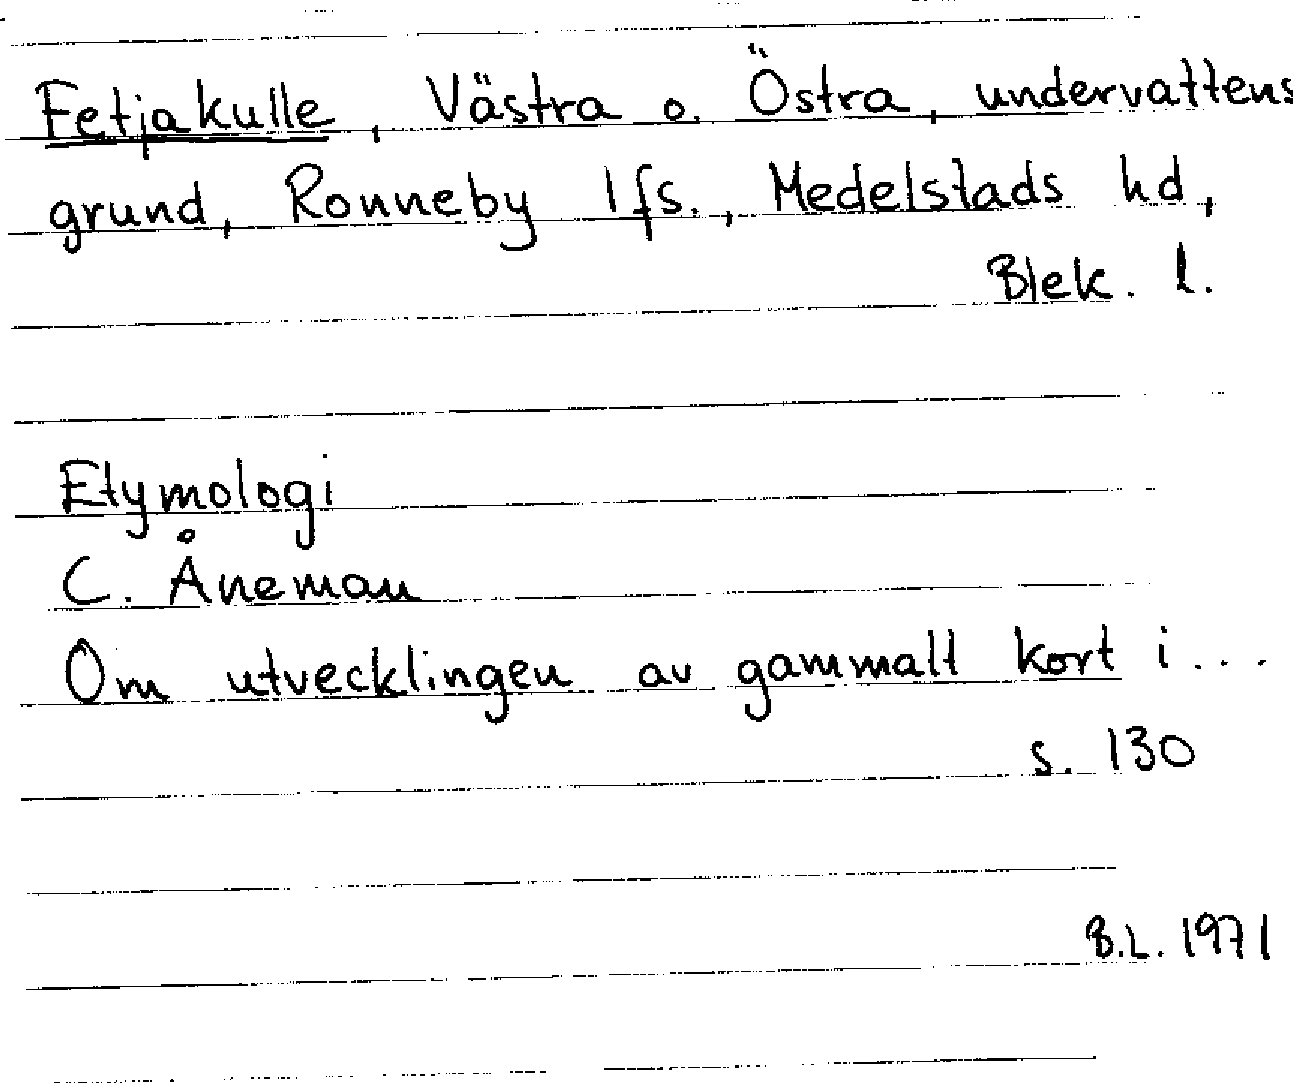 Fetjakulle, Västra o. Östra, undervattens
grund, Ronneby lfs., Medelstads hd,
Blek. l.
Etymologi
C. Åneman
Om utvecklingen av gammalt kort i...
s. 130
B.L. 1971